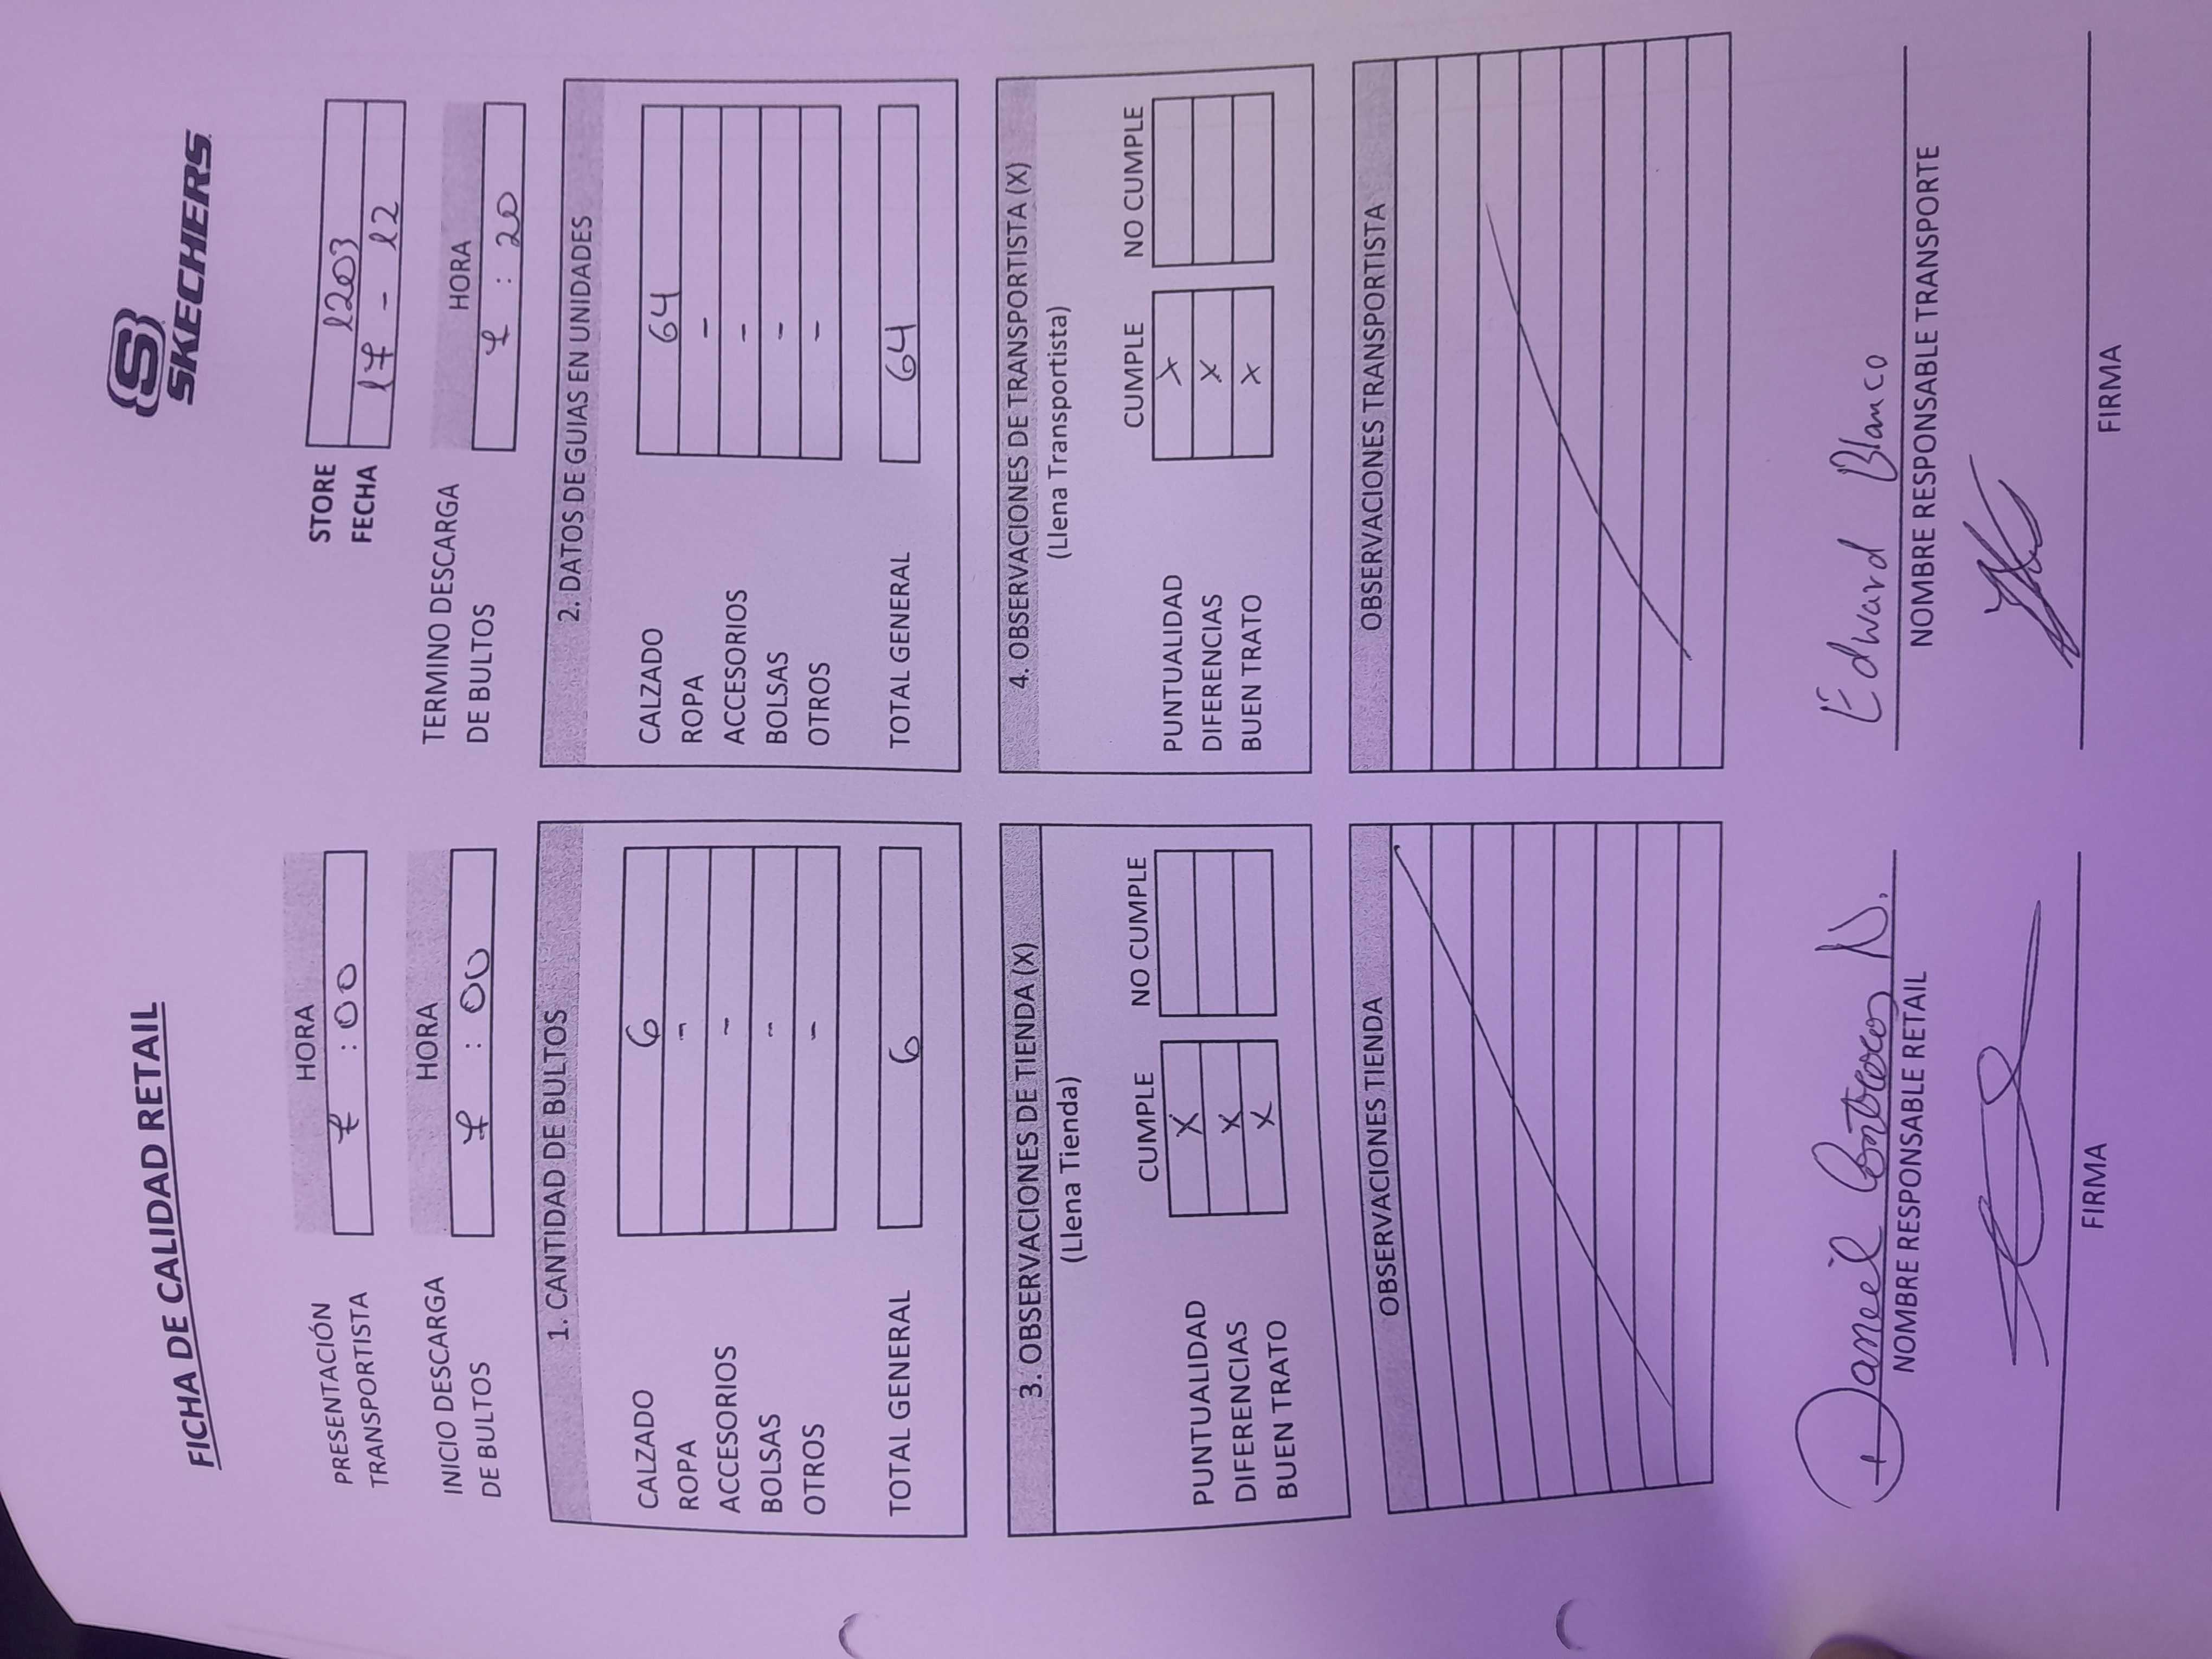 FICHA DE CALIDAD RETAIL
SKECHERS
STORE 1203
FECHA 17 - 12
HORA
PRESENTACIÓN TRANSPORTISTA 7 : 00
HORA
INICIO DESCARGA DE BULTOS 7 : 00
HORA
TERMINO DESCARGA DE BULTOS 7 : 20
1. CANTIDAD DE BULTOS
CALZADO 6
ROPA -
ACCESORIOS -
BOLSAS -
OTROS -
TOTAL GENERAL 6
2. DATOS DE GUIAS EN UNIDADES
CALZADO 64
ROPA -
ACCESORIOS -
BOLSAS -
OTROS -
TOTAL GENERAL 64
3. OBSERVACIONES DE TIENDA (X)
(Llena Tienda)
CUMPLE NO CUMPLE
PUNTUALIDAD X
DIFERENCIAS X
BUEN TRATO X
4. OBSERVACIONES DE TRANSPORTISTA (X)
(Llena Transportista)
CUMPLE NO CUMPLE
PUNTUALIDAD X
DIFERENCIAS X
BUEN TRATO X
OBSERVACIONES TIENDA
OBSERVACIONES TRANSPORTISTA
Daniel
NOMBRE RESPONSABLE RETAIL
FIRMA
Edward Blanco
NOMBRE RESPONSABLE TRANSPORTE
FIRMA